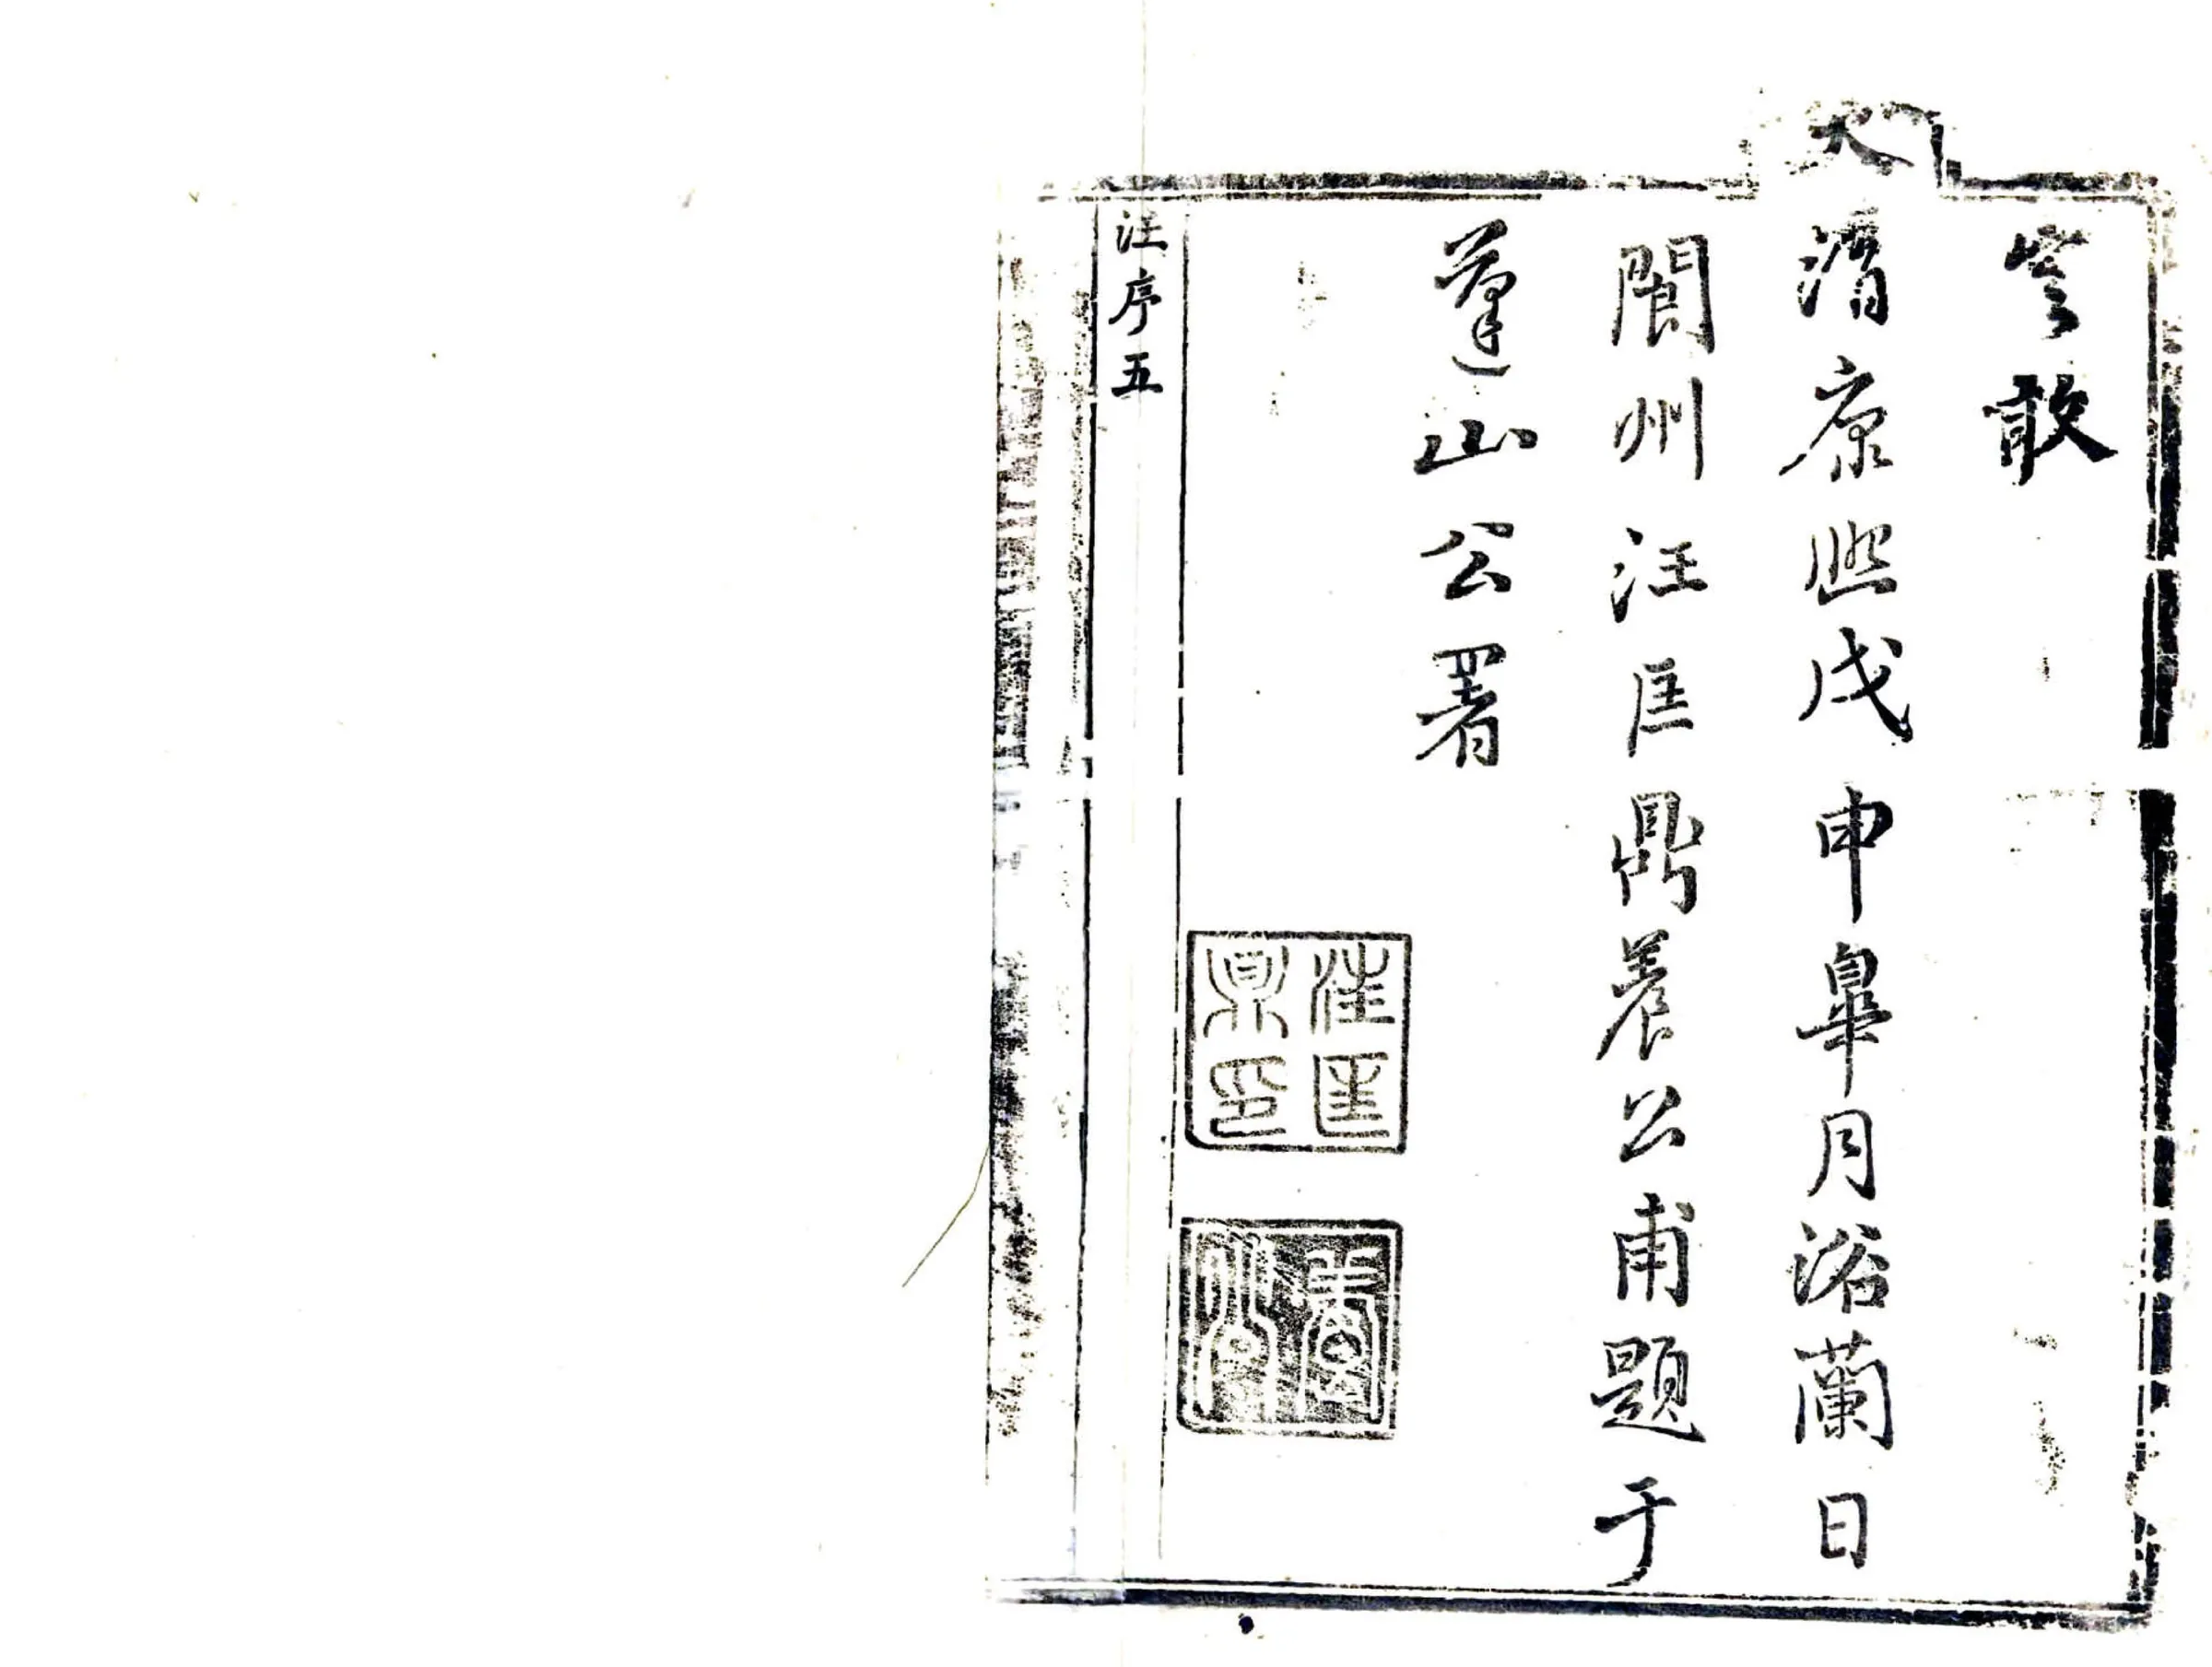 豈敢
大清康熙戊申皐月浴蘭日
閬州汪匡鼎養公甫題于
蓬山公署
汪匡
鼎印
汪序五